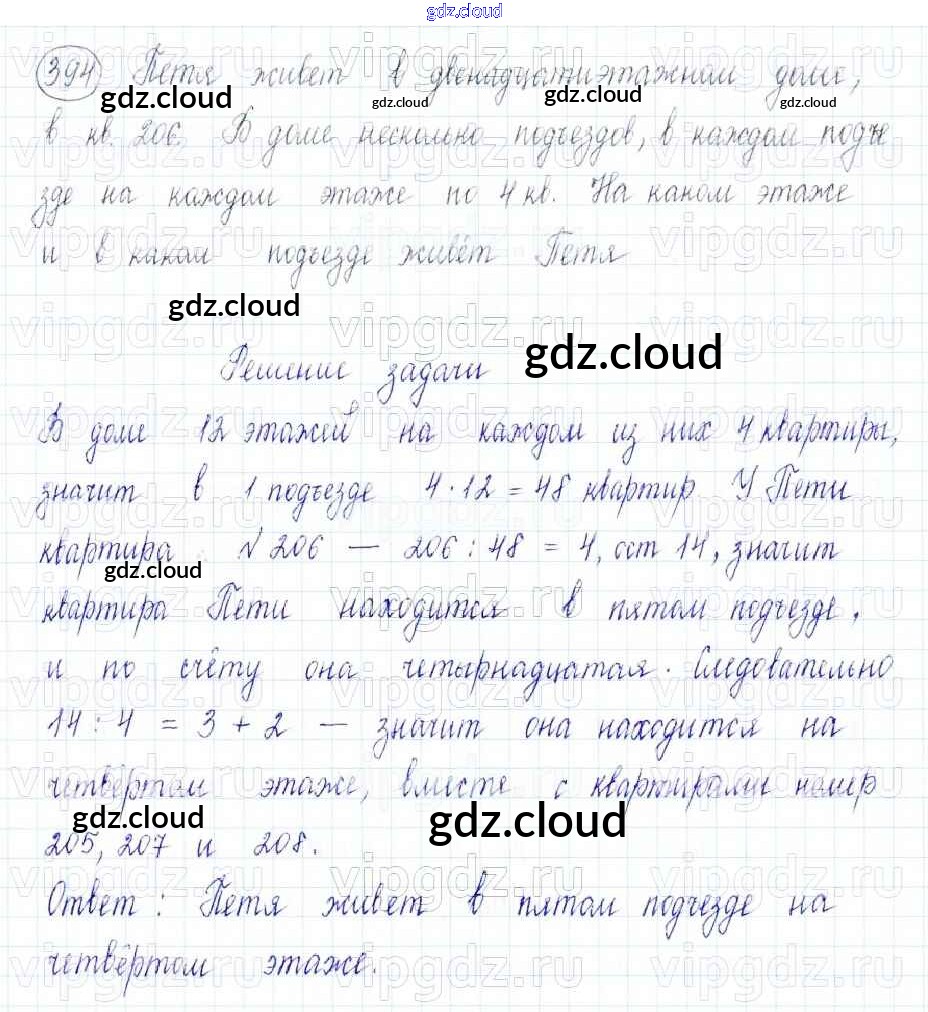 gdz.cloud
394 Петя живет в двенадцатиэтажном доме,
в кв. 206. В доме несколько подъездов, в каждом подъе
зде на каждом этаже по 4 кв. На каком этаже
и в каком подъезде живёт Петя
Решение задачи
В доме 12 этажей на каждом из них 4 квартиры,
значит в 1 подъезде 4 · 12 = 48 квартир У Пети
квартира № 206 — 206 : 48 = 4, ост 14, значит
квартира Пети находится в пятом подъезде,
и по счёту она четырнадцатая. Следовательно
14 : 4 = 3 + 2 — значит она находится на
четвёртом этаже, вместе с квартирами номер
205, 207 и 208.
Ответ: Петя живет в пятом подъезде на
четвёртом этаже.